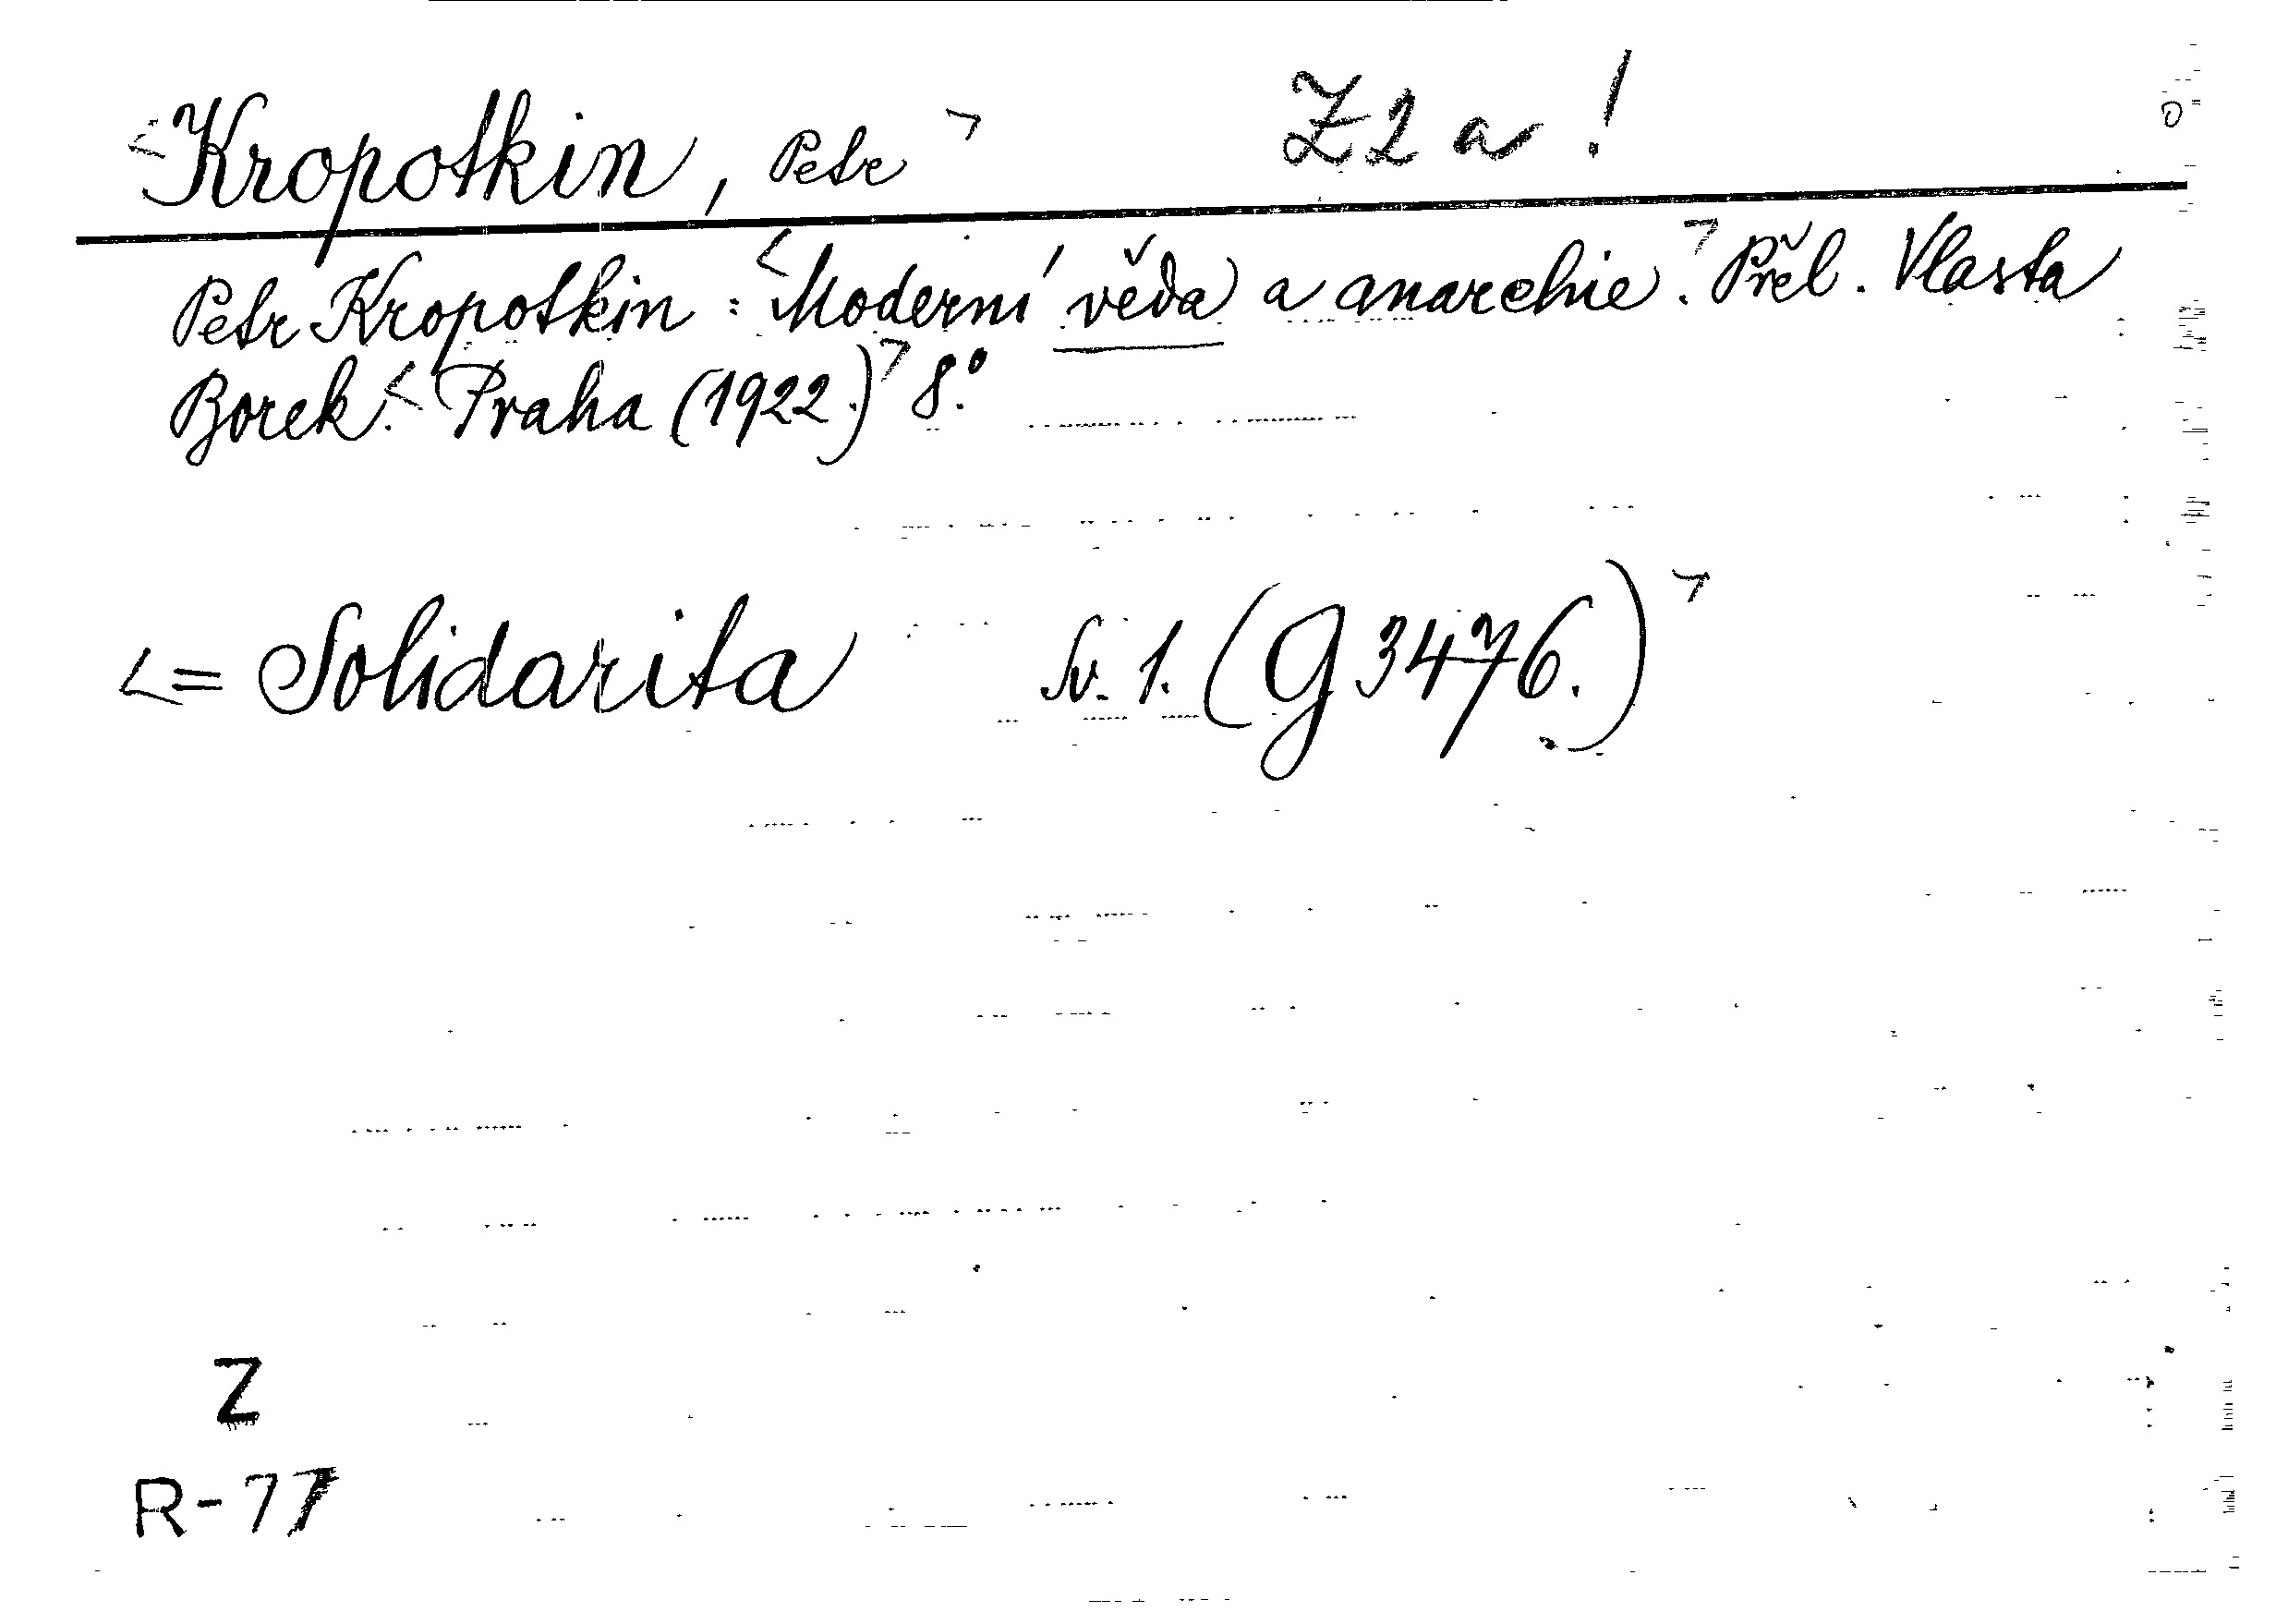 <Kropotkin, Petr> Z2a!
Petr Kropotkin: <Moderní věda a anarchie.> Přel. Vlasta
Borek. <Praha (1922.)> 8.°
<= Solidarita Sv. 1. (G 3476.)>
Z
R-77